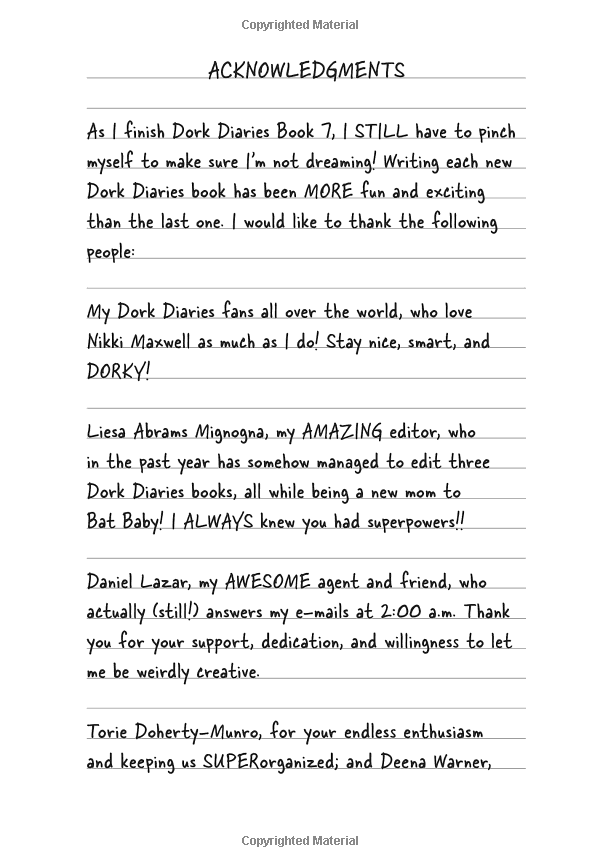 Copyrighted Material
ACKNOWLEDGMENTS
As I finish Dork Diaries Book 7, I STILL have to pinch
myself to make sure I'm not dreaming! Writing each new
Dork Diaries book has been MORE fun and exciting
than the last one. I would like to thank the following
people:
My Dork Diaries fans all over the world, who love
Nikki Maxwell as much as I do! Stay nice, smart, and
DORKY!
Liesa Abrams Mignogna, my AMAZING editor, who
in the past year has somehow managed to edit three
Dork Diaries books, all while being a new mom to
Bat Baby! I ALWAYS knew you had superpowers!!
Daniel Lazar, my AWESOME agent and friend, who
actually (still!) answers my e-mails at 2:00 a.m. Thank
you for your support, dedication, and willingness to let
me be weirdly creative.
Torie Doherty-Munro, for your endless enthusiasm
and keeping us SUPERorganized; and Deena Warner,
Copyrighted Material